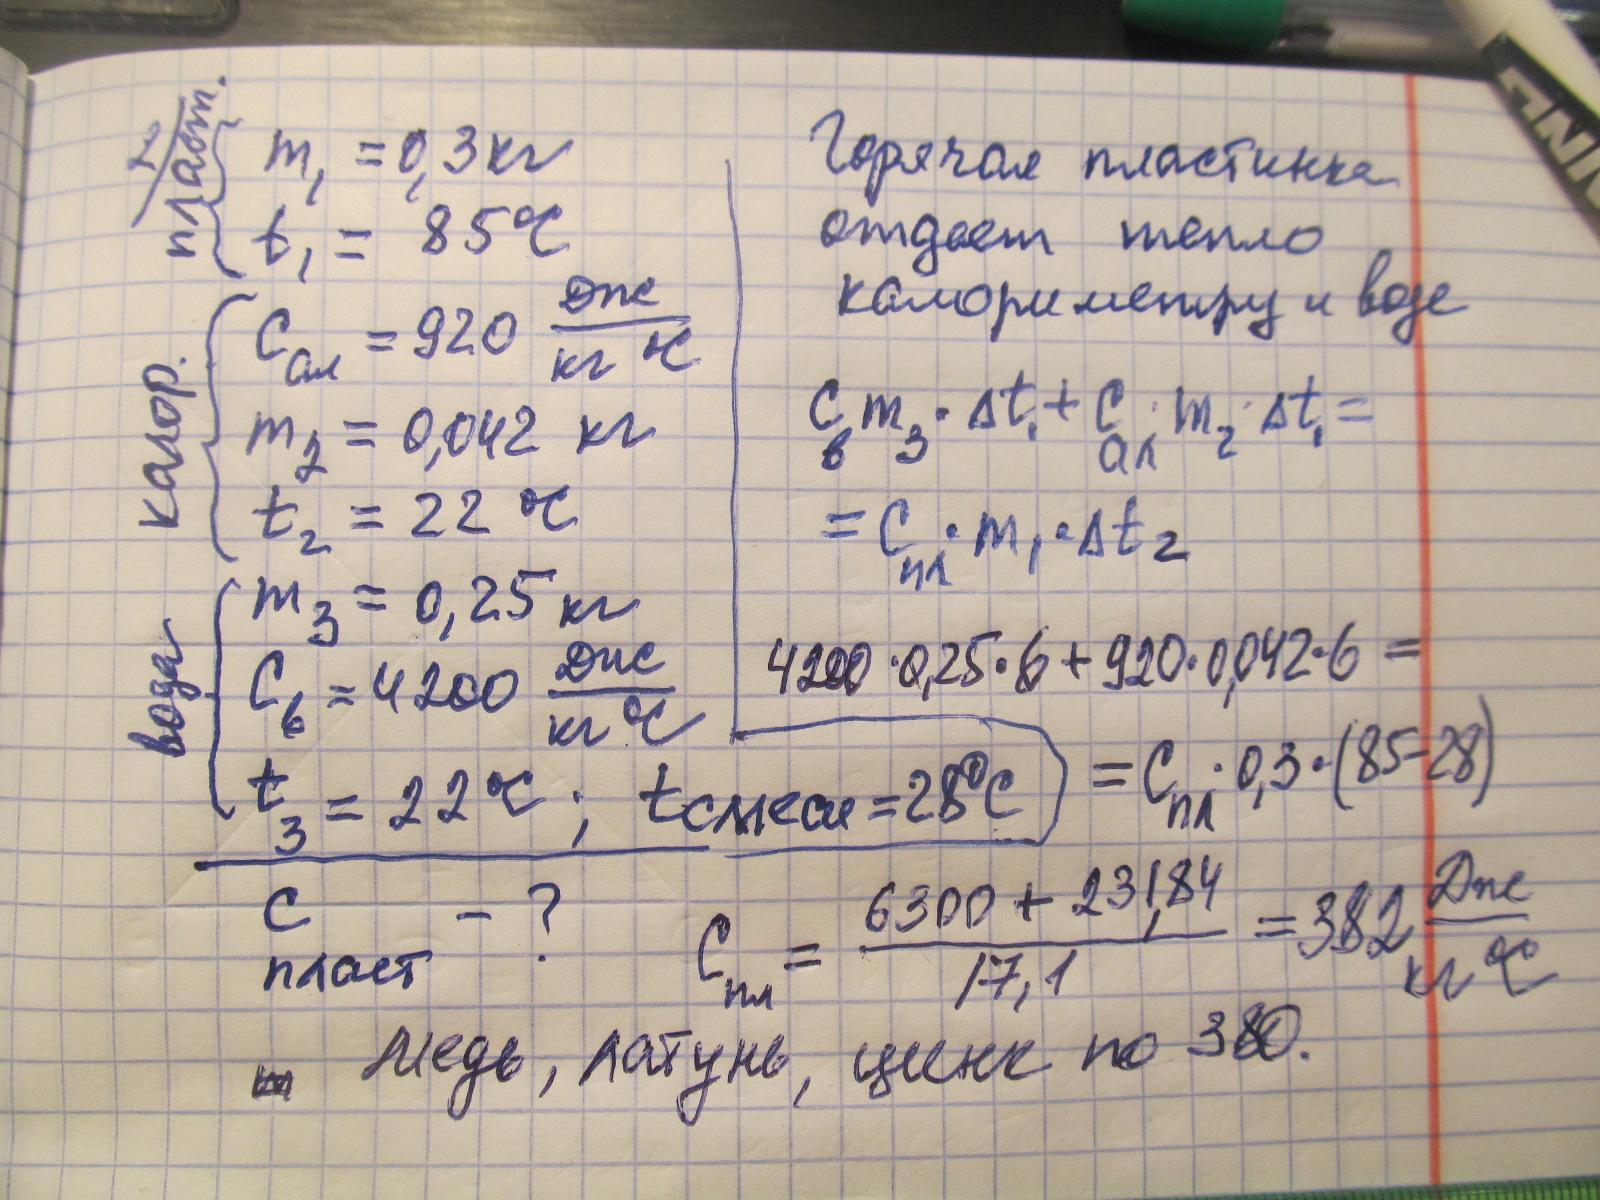 2/
пласт.
m₁ = 0,3 кг
t₁ = 85 °C
калор.
Cал = 920 Дж/кг °C
m₂ = 0,042 кг
t₂ = 22 °C
вода
m₃ = 0,25 кг
Cв = 4200 Дж/кг °C
t₃ = 22 °C ; tсмеси = 28°C
C пласт - ?
Горячая пластинка
отдает тепло
калориметру и воде
Cв m₃ · Δt₁ + Cал · m₂ · Δt₁ =
= Cпл · m₁ · Δt₂
4200 · 0,25 · 6 + 920 · 0,042 · 6 =
= Cпл · 0,3 · (85-28)
Cпл = 6300 + 231,84 / 17,1 = 382 Дж/кг °C
Медь, латунь, цинк по 380.